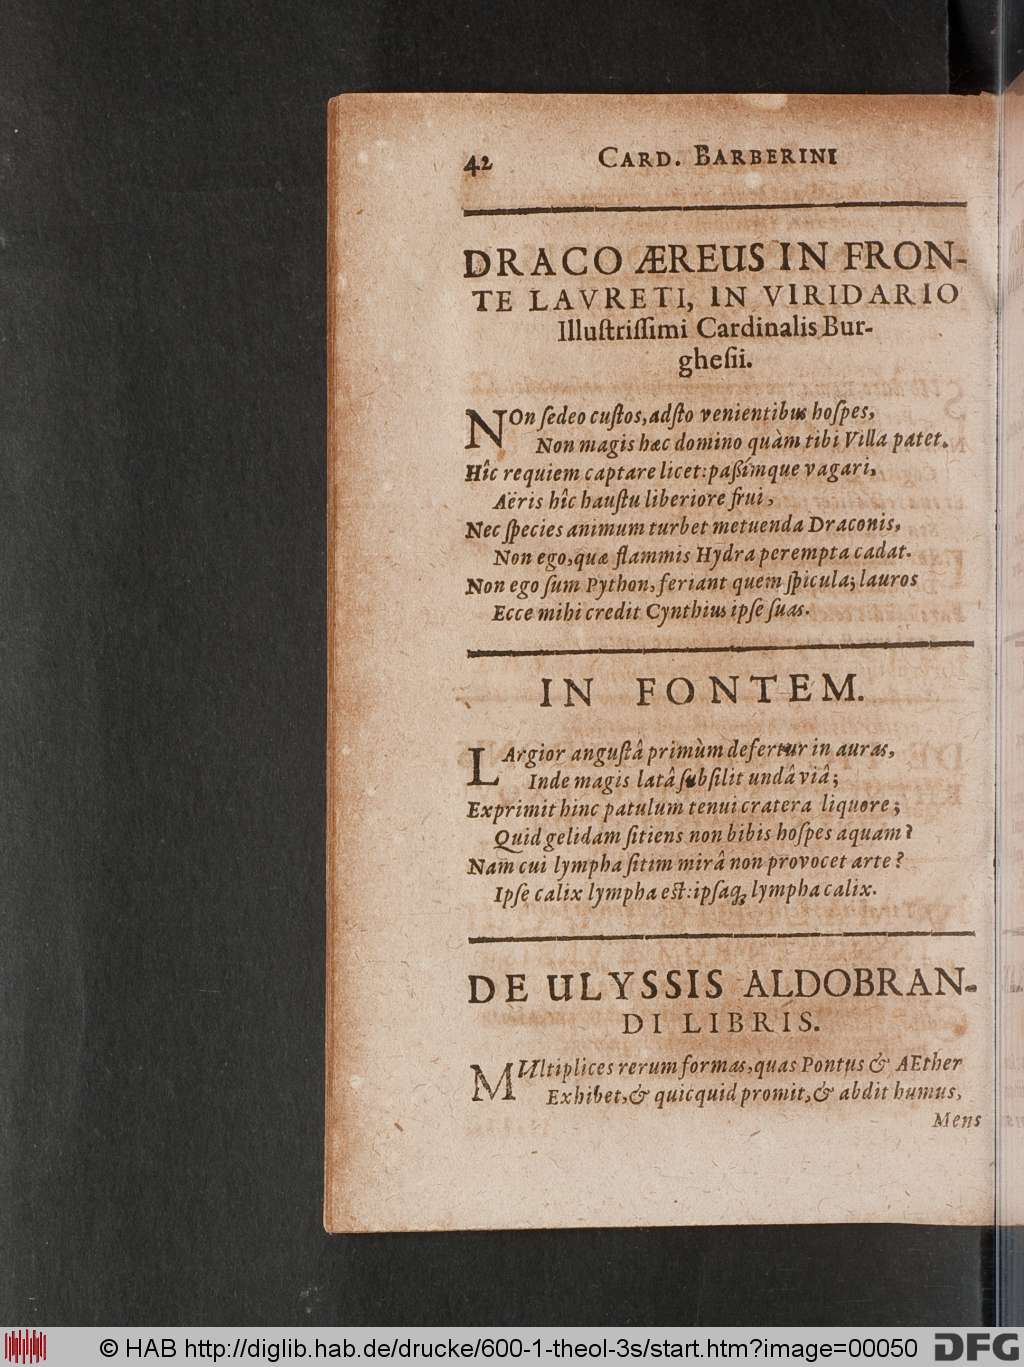 42 CARD. BARBERINI
DRACO ÆREUS IN FRON-
TE LAVRETI, IN VIRIDARIO
Illuſtriſſimi Cardinalis Bur-
gheſii.
NOn ſedeo cuſtos, adſto venientibus hoſpes,
Non magis hæc domino quàm tibi Villa patet.
Hîc requiem captare licet: paßímque vagari,
Aëris hîc hauſtu liberiore frui,
Nec ſpecies animum turbet metuenda Draconis,
Non ego, quæ flammis Hydra perempta cadat.
Non ego ſum Python, feriant quem ſpicula; lauros
Ecce mihi credit Cynthius ipſe ſuas.
IN FONTEM.
LArgior anguſtâ primùm defertur in auras,
Inde magis latâ ſubſilit undâ viâ;
Exprimit hinc patulum tenui cratera liquore;
Quid gelidam ſitiens non bibis hoſpes aquam?
Nam cui lympha ſitim mirâ non provocet arte?
Ipſe calix lympha eſt: ipſaq; lympha calix.
DE ULYSSIS ALDOBRAN-
DI LIBRIS.
MUltiplices rerum formas, quas Pontus & AEther
Exhibet, & quicquid promit, & abdit humus,
Mens
© HAB http://diglib.hab.de/drucke/600-1-theol-3s/start.htm?image=00050
DFG